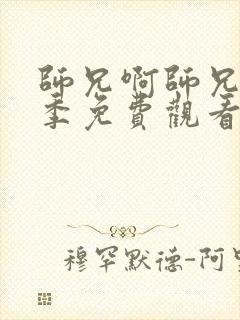 師兄啊師兄
季免費觀看
穆罕默德-阿